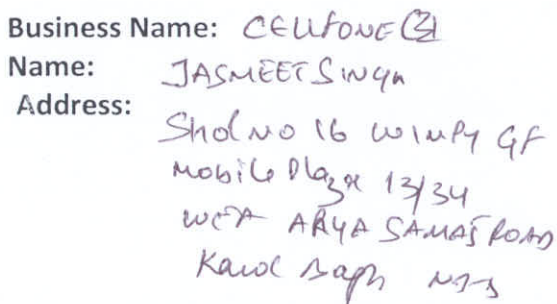 Business Name: CELLFONE
Name: JASMEET SINGH
Address:
Shol NO 16 WIMPY GF
Mobile Plaza 13/34
WEA ARYA SAMAJ ROAD
Karol Bagh